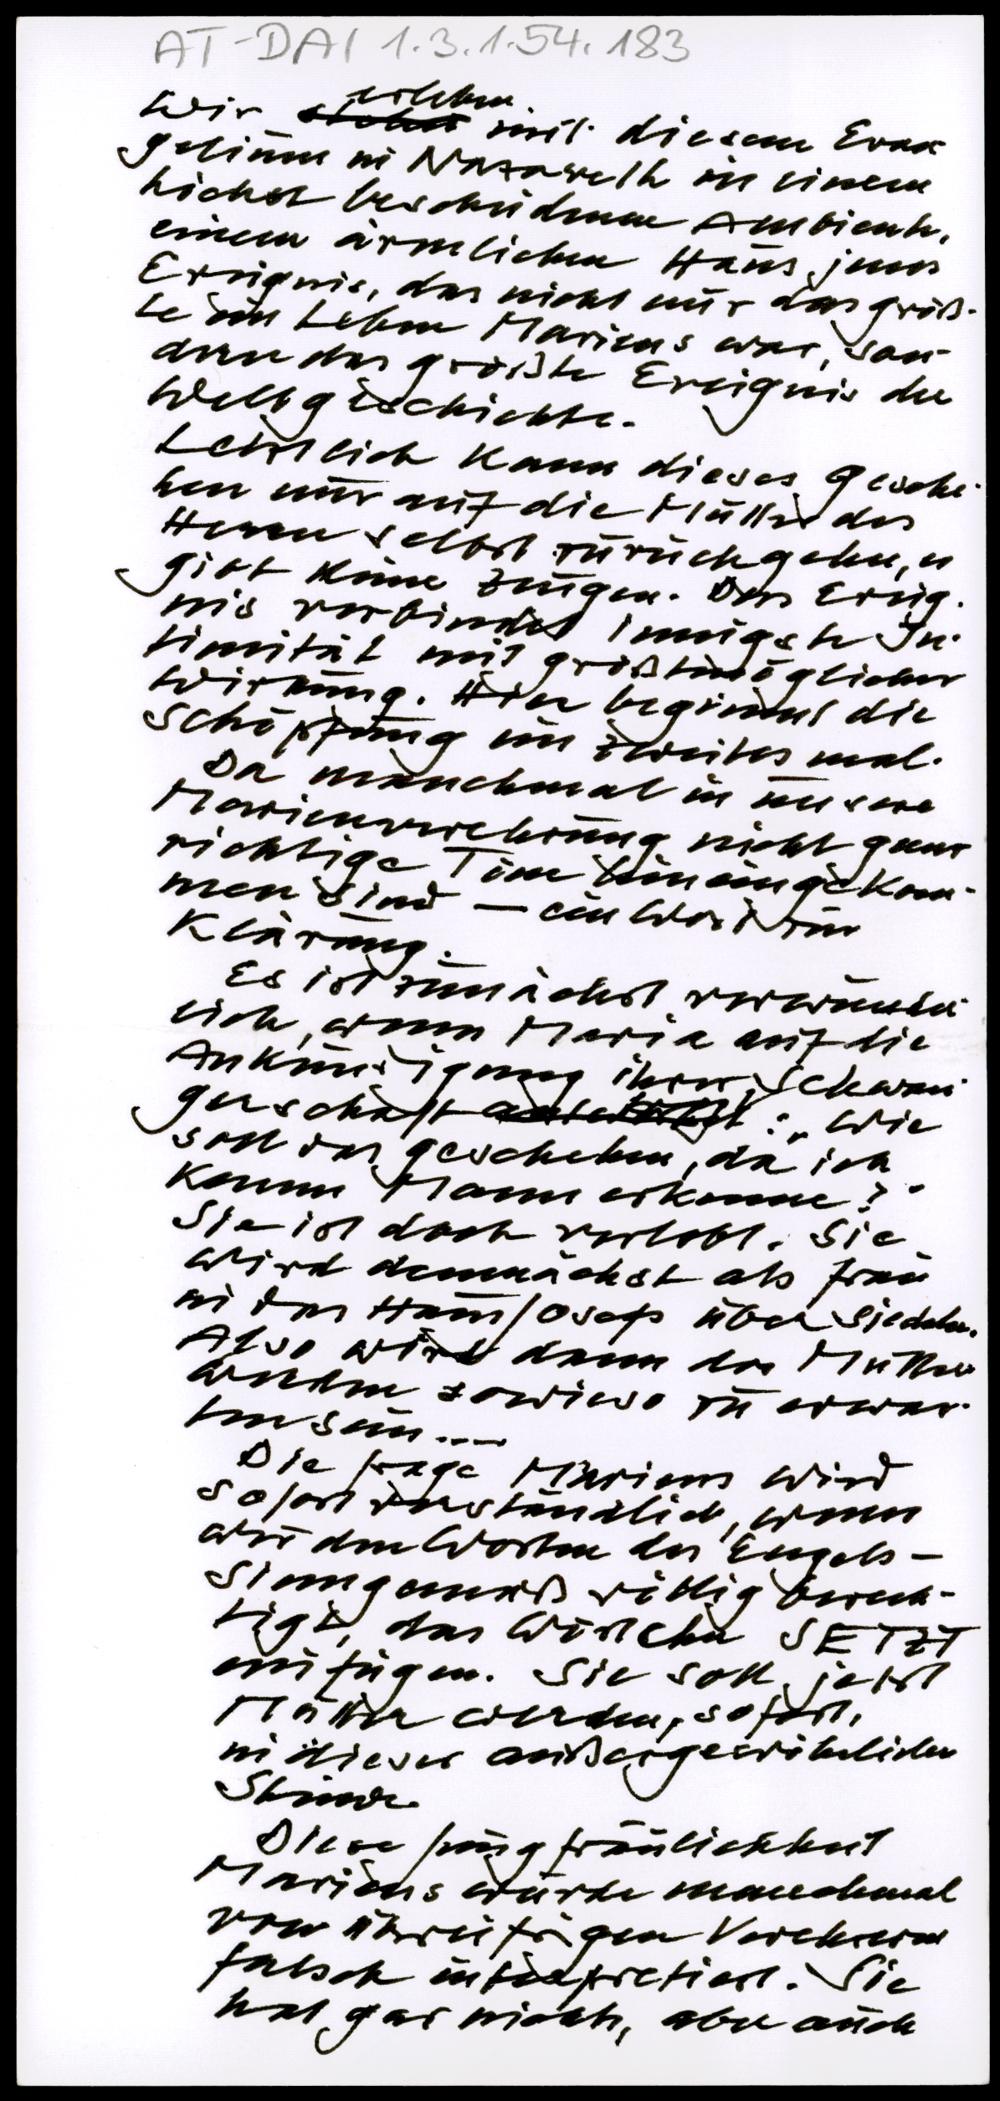 AT-DAI 1.3.1.54.183
erleben
Wir mit diesem Evan
gelium in Nazareth in einem
höchst bescheidenen Ambiente,
einem ärmlichen Haus jenes
Ereignis, das nicht nur das größ-
te im Leben Mariens war, son-
dern das größte Ereignis der
Weltgeschichte.
Letztlich kann dieses Gesche-
hen nur auf die Mutter des
Herrn selbst zurückgehen, es
gibt keine Zeugen. Das Ereig-
nis verbindet innigste In-
timität mit größtmöglicher
Wirkung. Hier beginnt die
Schöpfung ein zweites mal.
Da manchmal in unsere
Marienverehrung nicht ganz
richtige Töne hineingekom-
men sind — ein Wort zur
Klärung.
Es ist zunächst verwunder-
lich, wenn Maria auf die
Ankündigung ihrer Schwan-
gerschaft : „Wie
soll das geschehen, da ich
keinen Mann erkenne?"
Sie ist doch verlobt. Sie
wird demnächst als Frau
in das Haus Josefs übersiedeln.
Also wird dann das Mutter
werden sowieso zu erwar-
ten sein....
Die Frage Mariens wird
sofort verständlich, wenn
wir den Worten des Engels –
sinngemäß völlig berech-
tigt, das Wörtchen JETZT
einfügen. Sie soll jetzt
Mutter werden, sofort,
in dieser außergewöhnlichen
Stunde.
Diese Jungfräulichkeit
Mariens wurde manchmal
von übereifrigen Verehrern
falsch interpretiert. Sie
hat gar nichts, aber auch